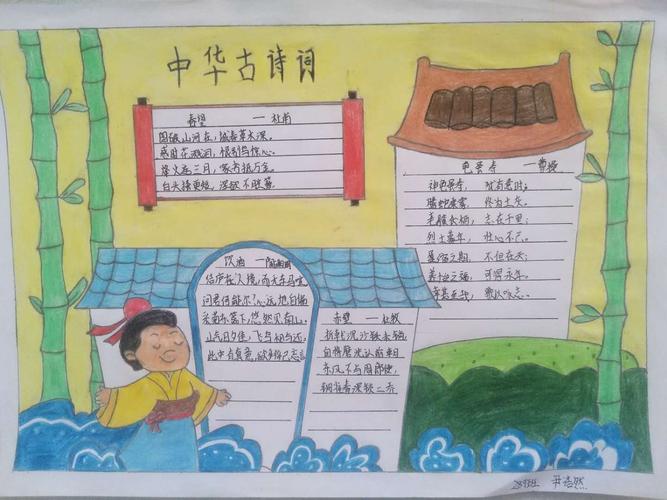 中华古诗词
春望 — 杜甫
国破山河在，城春草木深。
感时花溅泪，恨别鸟惊心。
烽火连三月，家书抵万金。
白头搔更短，浑欲不胜簪。
龟虽寿 — 曹操
神龟虽寿，犹有竟时；
腾蛇乘雾，终为土灰。
老骥伏枥，志在千里；
烈士暮年，壮心不已。
盈缩之期，不但在天；
养怡之福，可得永年。
幸甚至哉，歌以咏志。
饮酒 — 陶渊明
结庐在人境，而无车马喧，
问君何能尔？心远地自偏
采菊东篱下，悠然见南山。
山气日夕佳，飞鸟相与还，
此中有真意，欲辨已忘言
赤壁 — 杜牧
折戟沉沙铁未销
自将磨洗认前朝
东风不与周郎便，
铜雀春深锁二乔